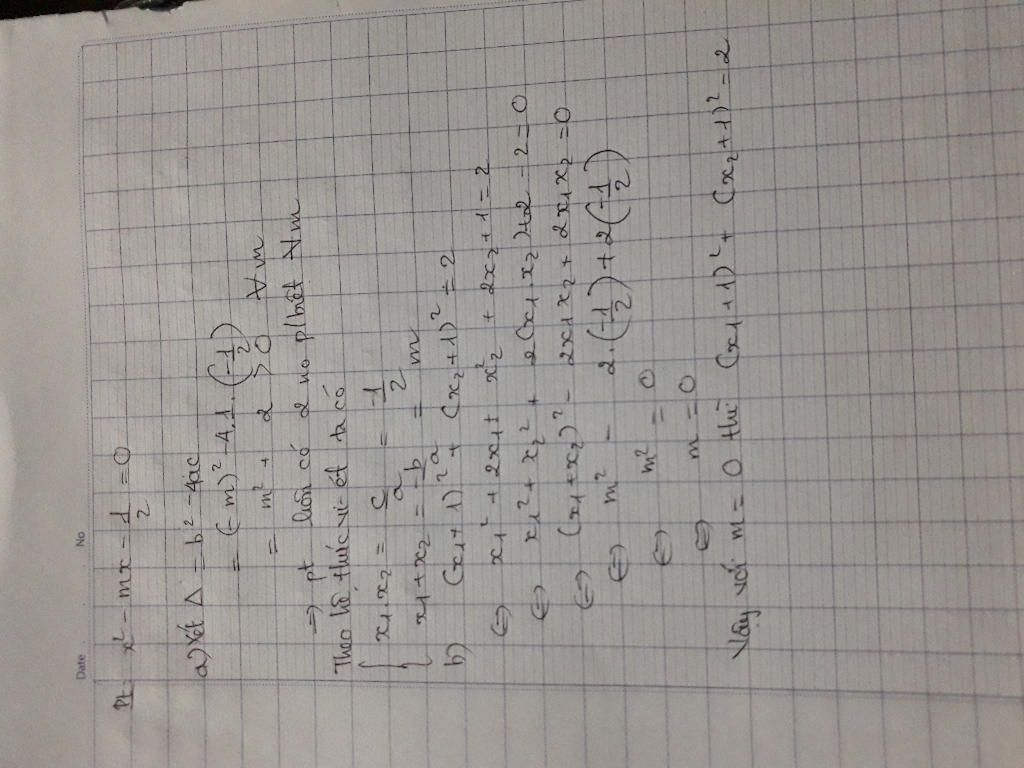 Date No
Pt: x² - mx - 1/2 = 0
a) Xét Δ = b² - 4ac
= (-m)² - 4.1.(-1/2)
= m² + 2 > 0 ∀m
=> pt luôn có 2 no p/biệt ∀m
Theo hệ thức vi-ét ta có
{ x1.x2 = c/a = -1/2
x1+x2 = -b/a = m
b) (x1+1)² + (x2+1)² = 2
<=> x1² + 2x1 + x2² + 2x2 + 1 = 2
<=> x1² + x2² + 2(x1.x2)+2 - 2 = 0
<=> (x1+x2)² - 2x1x2 + 2x1x2 = 0
<=> m² - 2.(-1/2) + 2(-1/2)
<=> m² = 0
<=> m = 0
Vậy với m = 0 thì (x1+1)² + (x2+1)² = 2